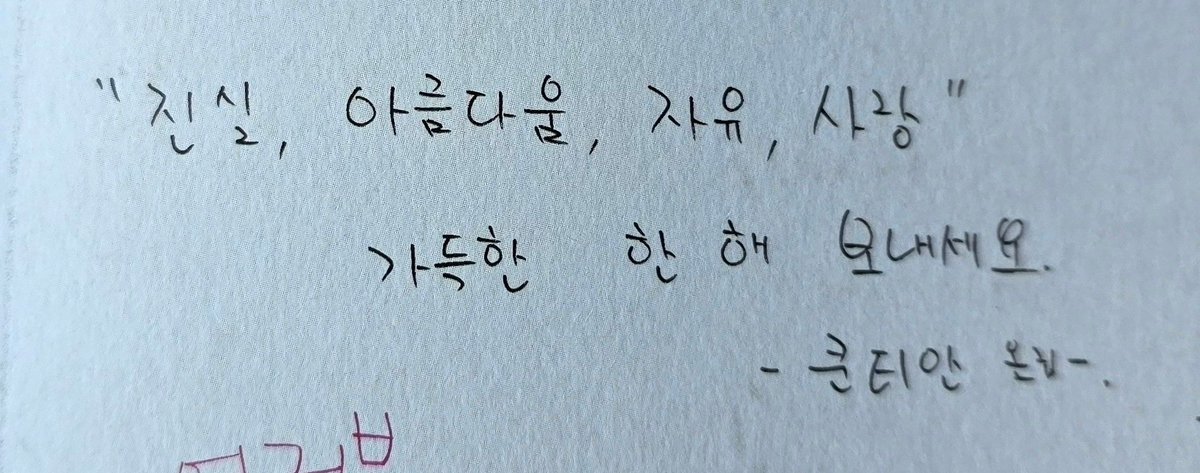 "진실, 아름다움, 자유, 사랑"
가득한 한 해 보내세요.
- 크리스티안